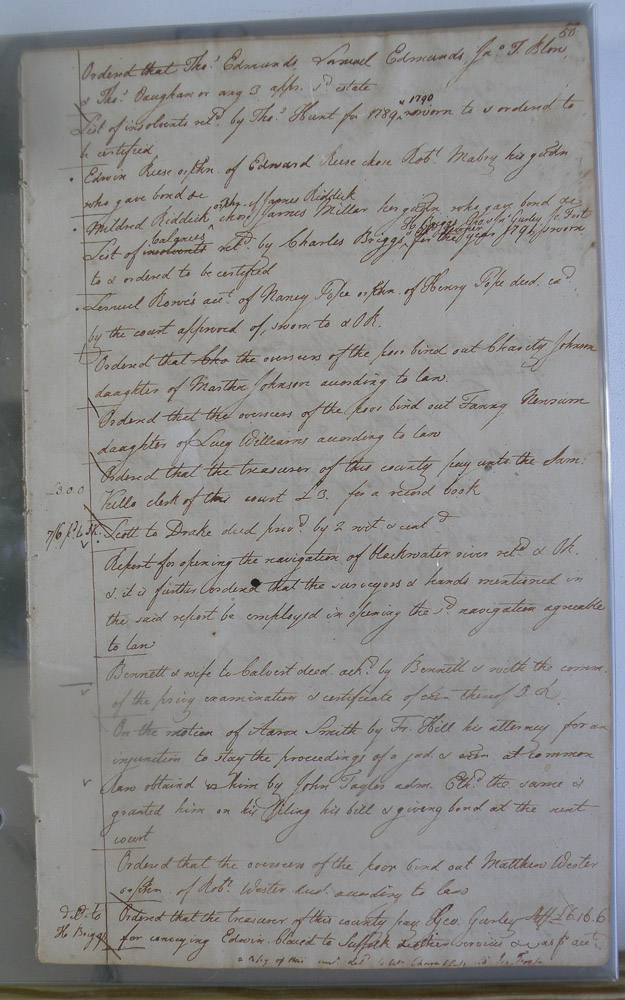 50
Ordered that Thos. Edmunds, Samuel Edmunds, Jno. T. Blow,
& Thos. Vaughan or any 3 appr. sd. estate
List of insolvents retd. by Thos. Hunt for 1789 & 1790 sworn to & ordered to
be certified
Edwin Reese orphn. of Edward Reese chose Robt. Mabry his gdn.
who gave bond &c
Mildred Riddick orphn. of James Riddick chose James Millar her gdn. who gave bond &c
List of insolvents retd. by Charles Briggs, for the year 1791 sworn
to & ordered to be certified
Lemuel Rowe's acct. of Nancy Pope orphn. of Henry Pope deed. exd.
by the court approved of, sworn to & OR.
Ordered that the overseers of the poor bind out Charity Johnson
daughter of Martha Johnson according to law.
Ordered that the overseers of the poor bind out Fanny Newsum
daughter of Lucy Williams according to law
Ordered that the treasurer of this county pay unto the Sam:
Kello clerk of this court £3. for a record book
£3.0.0
7/6
Scott to Drake deed provd. by 2 wit. & contd.
Report for opening the navigation of blackwater river retd. & OR.
& it is further ordered that the surveyors & hands mentioned in
the said report be employed in opening the sd. navigation agreeable
to law
Bennett & wife to Calvert deed ackd. by Bennett & with the comm.
of the privy examination & certificate of exn thereof O. R.
On the motion of Aaron Smith by Fr. Hill his attorney for an
injunction to stay the proceedings of a jud. & exon at common
law obtaind vs him by John Taylor adm. the same is
granted him on his filing his bill & giving bond at the next
court
Ordered that the overseers of the poor bind out Matthew Wester
orphn. of Robt. Wester decd. according to law
Ordered that the treasurer of this county pay Geo. Gurley £6.16.6
for conveying Edwin to Suffolk & other services & as pr. acct.
dd. to
H. Briggs